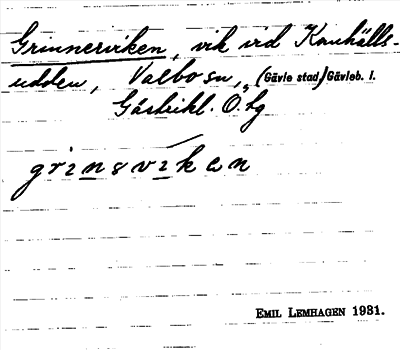 Grinnerviken, vik vid Kanhälls-
udden, Valbo sn, (Gävle stad) Gävleb. l.
Gästrikl. Ö. tg
grinsviken
EMIL LEMHAGEN 1931.